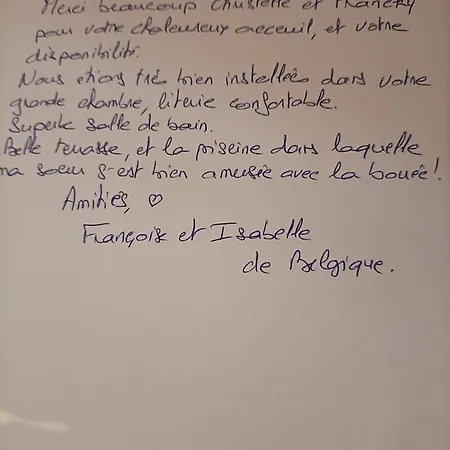 Merci beaucoup Christelle et Francky
pour votre chaleureux acceuil, et votre
disponibilité.
Nous étions trés bien installées dans votre
grande chambre, literie confortable.
Superbe salle de bain.
Belle terrasse, et la piscine dans laquelle
ma soeur s'est bien amusée avec la bouée!
Amitiés, ♡
Françoise et Isabelle
de Belgique.